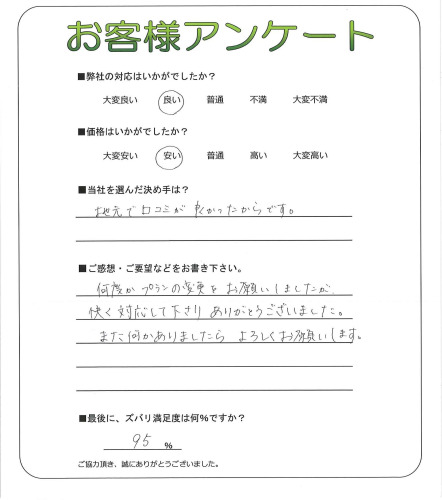 お客様アンケート
■弊社の対応はいかがでしたか？
大変良い 良い 普通 不満 大変不満
■価格はいかがでしたか？
大変安い 安い 普通 高い 大変高い
■当社を選んだ決め手は？
地元で口コミが良かったからです。
■ご感想・ご要望などをお書き下さい。
何度かプランの変更をお願いしましたが
快く対応して下さりありがとうございました。
また何かありましたら よろしくお願いします。
■最後に、ズバリ満足度は何%ですか？
95 %
ご協力頂き、誠にありがとうございました。